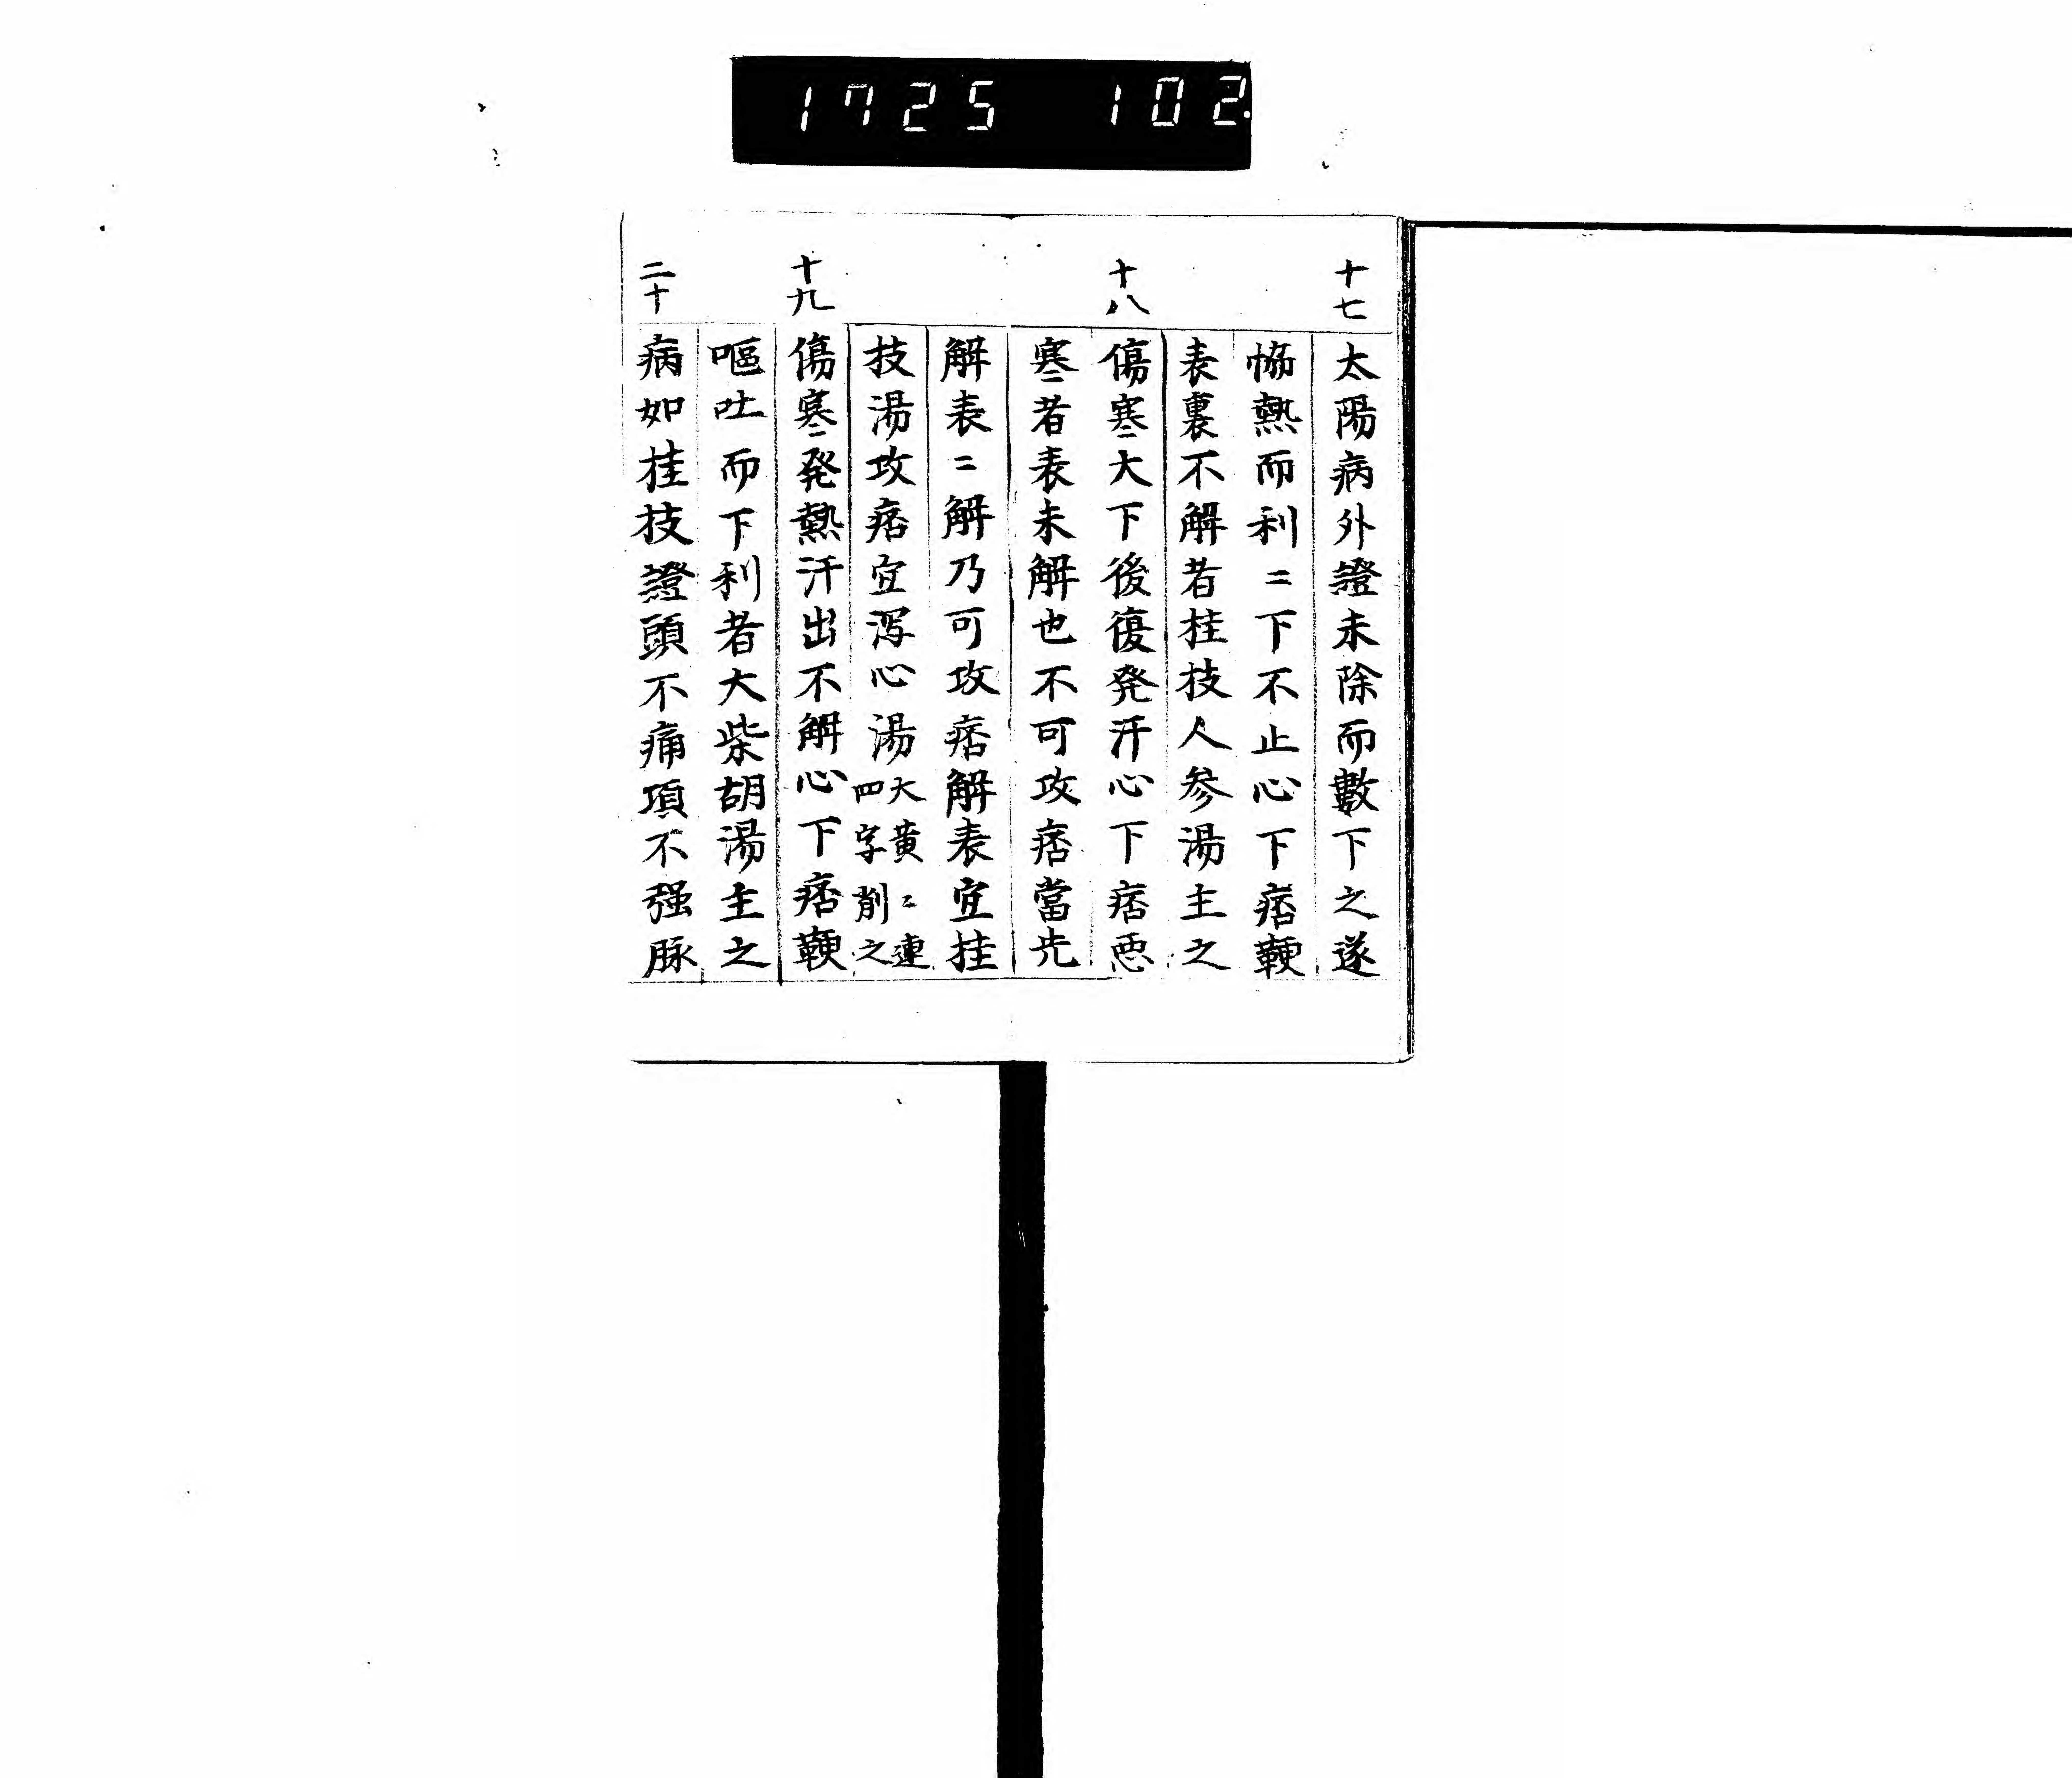 1725 102
十七
太陽病外證未除而數下之遂
恊熱而利〻下不止心下痞鞕
表裏不解者桂技人参湯主之
十八
傷寒大下後復発汗心下痞悪
寒者表未解也不可攻痞當先
解表〻解乃可攻痞解表宜桂
技湯攻痞宜瀉心湯大黄〻連四字削之
十九
傷寒発熱汗出不解心下痞鞕
嘔吐而下利者大柴胡湯主之
二十
病如桂技證頭不痛項不强脉